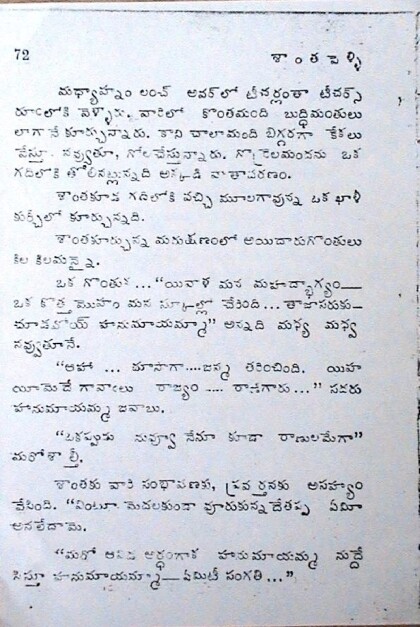 72 శాంతపెళ్ళి
మధ్యాహ్నం లంచ్ అవర్‌లో టీచర్లంతా టీచర్స్
రూంలోకి వెళ్ళారు. వారిలో కొంతమంది బుద్ధిమంతులు
లాగానే కూర్చున్నారు. కాని చాలామంది బిగ్గరగా కేకలు
వేస్తూ నవ్వుతూ, గోలచేస్తున్నారు. గొర్రెలమందను ఒక
గదిలోకి తోలినట్లున్నది అక్కడి వాతావరణం.
శాంతకూడ గదిలోకి వచ్చి మూలగావున్న ఒక ఖాళీ
కుర్చీలో కూర్చున్నది.
శాంతకూర్చున్న మరుక్షణంలో అయిదారుగొంతులు
కిల కిలమన్నై.
ఒక గొంతుక ... "యివాళ మన మహద్భాగ్యం—
ఒక కొత్త మొహం మన స్కూల్లో చేరింది ... తాజాసరుకు—
చూడవోయ్ హనుమాయమ్మా" అన్నది మధ్య మధ్య
నవ్వుతూనే.
"ఆహా ... చూసాగా .... జన్మ తరించింది. యిహ
యీమెదే గావాలు రాజ్యం .... రాణిగారు ..." సదరు
హనుమాయమ్మ జవాబు.
"ఒకప్పుడు నువ్వూ నేనూ కూడా రాణులమేగా"
మరోశాల్తీ.
శాంతకు వారి సంభాషణకు, ప్రవర్తనకు అసహ్యం
వేసింది. "వింటూ మెదలకుండా వూరుకున్న దేతప్ప ఏమీ
అనలేదామె.
"మరో ఆవిడ అర్ధంగాక హనుమాయమ్మ నుద్దే
సిస్తూ హనుమాయమ్మా—ఏమిటీ సంగతి ..."